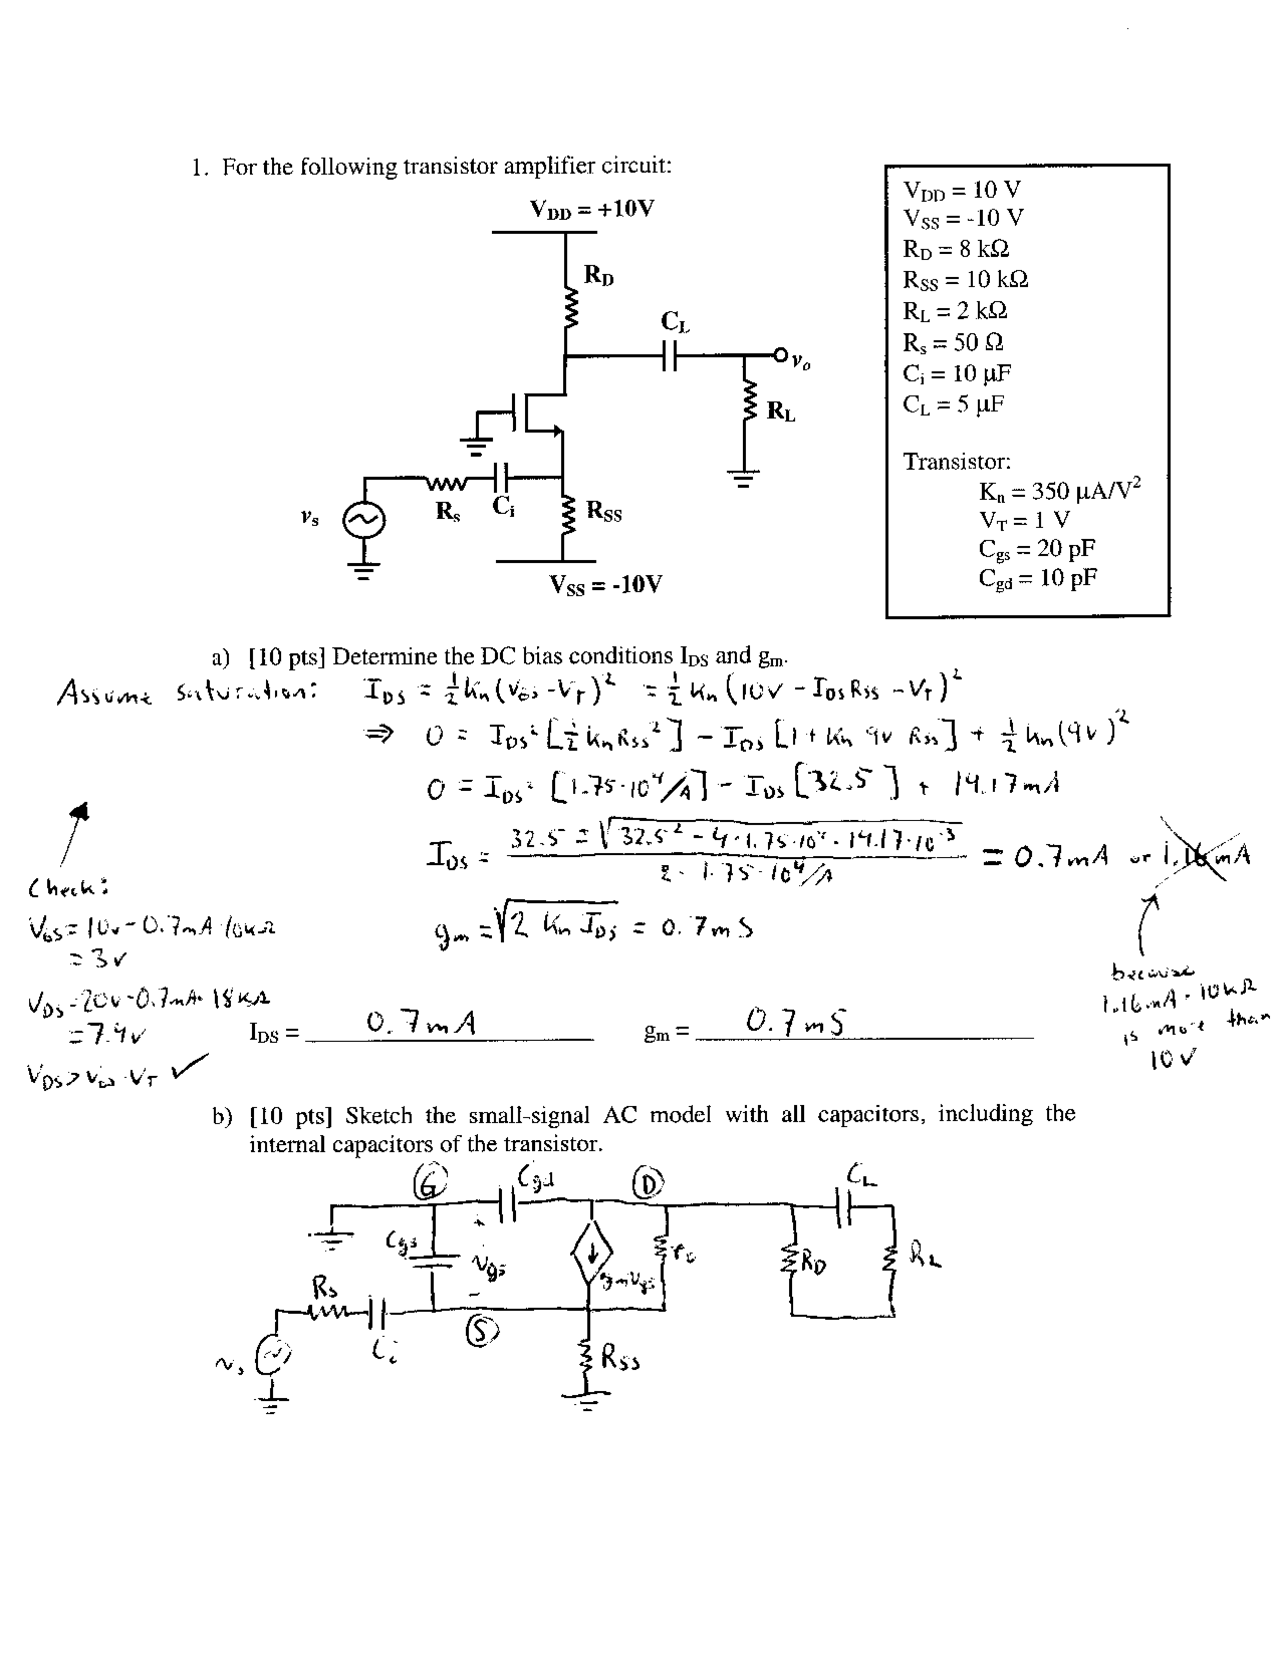 1. For the following transistor amplifier circuit:
V_DD = +10V
R_D
C_L
v_o
R_L
v_s
R_s
C_i
R_SS
V_SS = -10V
V_DD = 10 V
V_SS = -10 V
R_D = 8 kΩ
R_SS = 10 kΩ
R_L = 2 kΩ
R_s = 50 Ω
C_i = 10 μF
C_L = 5 μF
Transistor:
K_n = 350 μA/V²
V_T = 1 V
C_gs = 20 pF
C_gd = 10 pF
a) [10 pts] Determine the DC bias conditions I_DS and g_m.
Assume saturation: I_DS = ½ K_n (V_GS - V_T)² = ½ K_n (10V - I_DS R_SS - V_T)²
⇒ 0 = I_DS² [½ K_n R_SS²] - I_DS [1 + K_n 9V R_SS] + ½ K_n (9V)²
0 = I_DS² [1.75·10⁴/A] - I_DS [32.5] + 14.17mA
I_DS = (32.5 ± √(32.5² - 4·1.75·10⁴·14.17·10⁻³)) / (2·1.75·10⁴/A) = 0.7mA or 1.16mA
g_m = √(2 K_n I_DS) = 0.7mS
Check:
V_GS = 10V - 0.7mA·10kΩ
= 3V
V_DS = 20V - 0.7mA·18kΩ
= 7.4V
V_DS > V_GS - V_T ✓
because
1.16mA·10kΩ
is more than
10V
I_DS = 0.7mA g_m = 0.7mS
b) [10 pts] Sketch the small-signal AC model with all capacitors, including the
internal capacitors of the transistor.
G
C_gd
D
C_L
C_gs
+
v_gs
-
g_m v_gs
r_o
R_D
R_L
R_s
C_i
S
v_s
R_SS